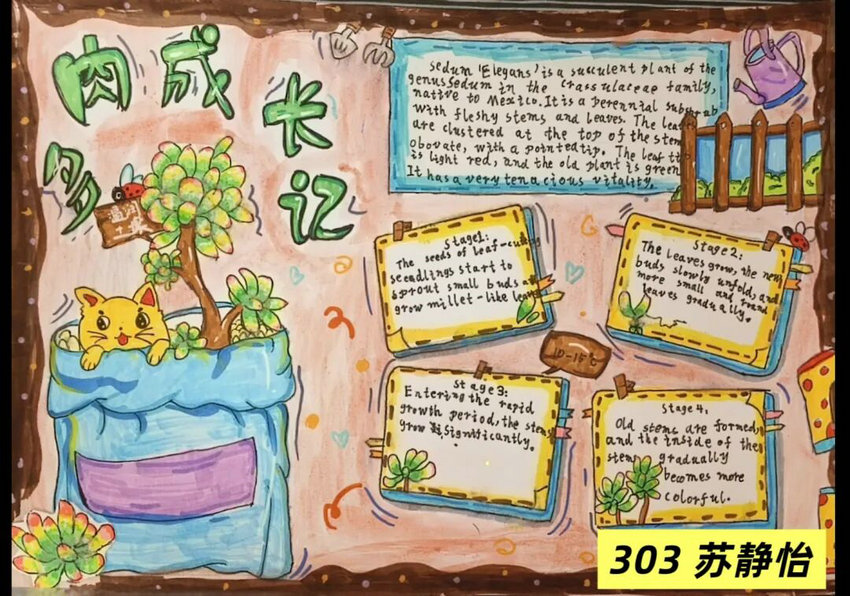 多肉成长记
温润土壤
Sedum 'Elegans' is a succulent plant of the
genus Sedum in the Crassulaceae family,
native to Mexico. It is a perennial subshrub
with fleshy stems and leaves. The leaves
are clustered at the top of the stem,
obovate, with a pointed tip. The leaf tip
is light red, and the old plant is green.
It has a very tenacious vitality.
Stage1:
The seeds of leaf-cutting
seedlings start to
sprout small buds and
grow millet-like leaves
Stage2:
The leaves grow, the new
buds slowly unfold, and
more small and round
leaves gradually.
10-15℃
Stage3:
Entering the rapid
growth period, the stems
grow significantly.
Stage4.
Old stems are formed,
and the inside of the
stem gradually
becomes more
colorful.
303 苏静怡